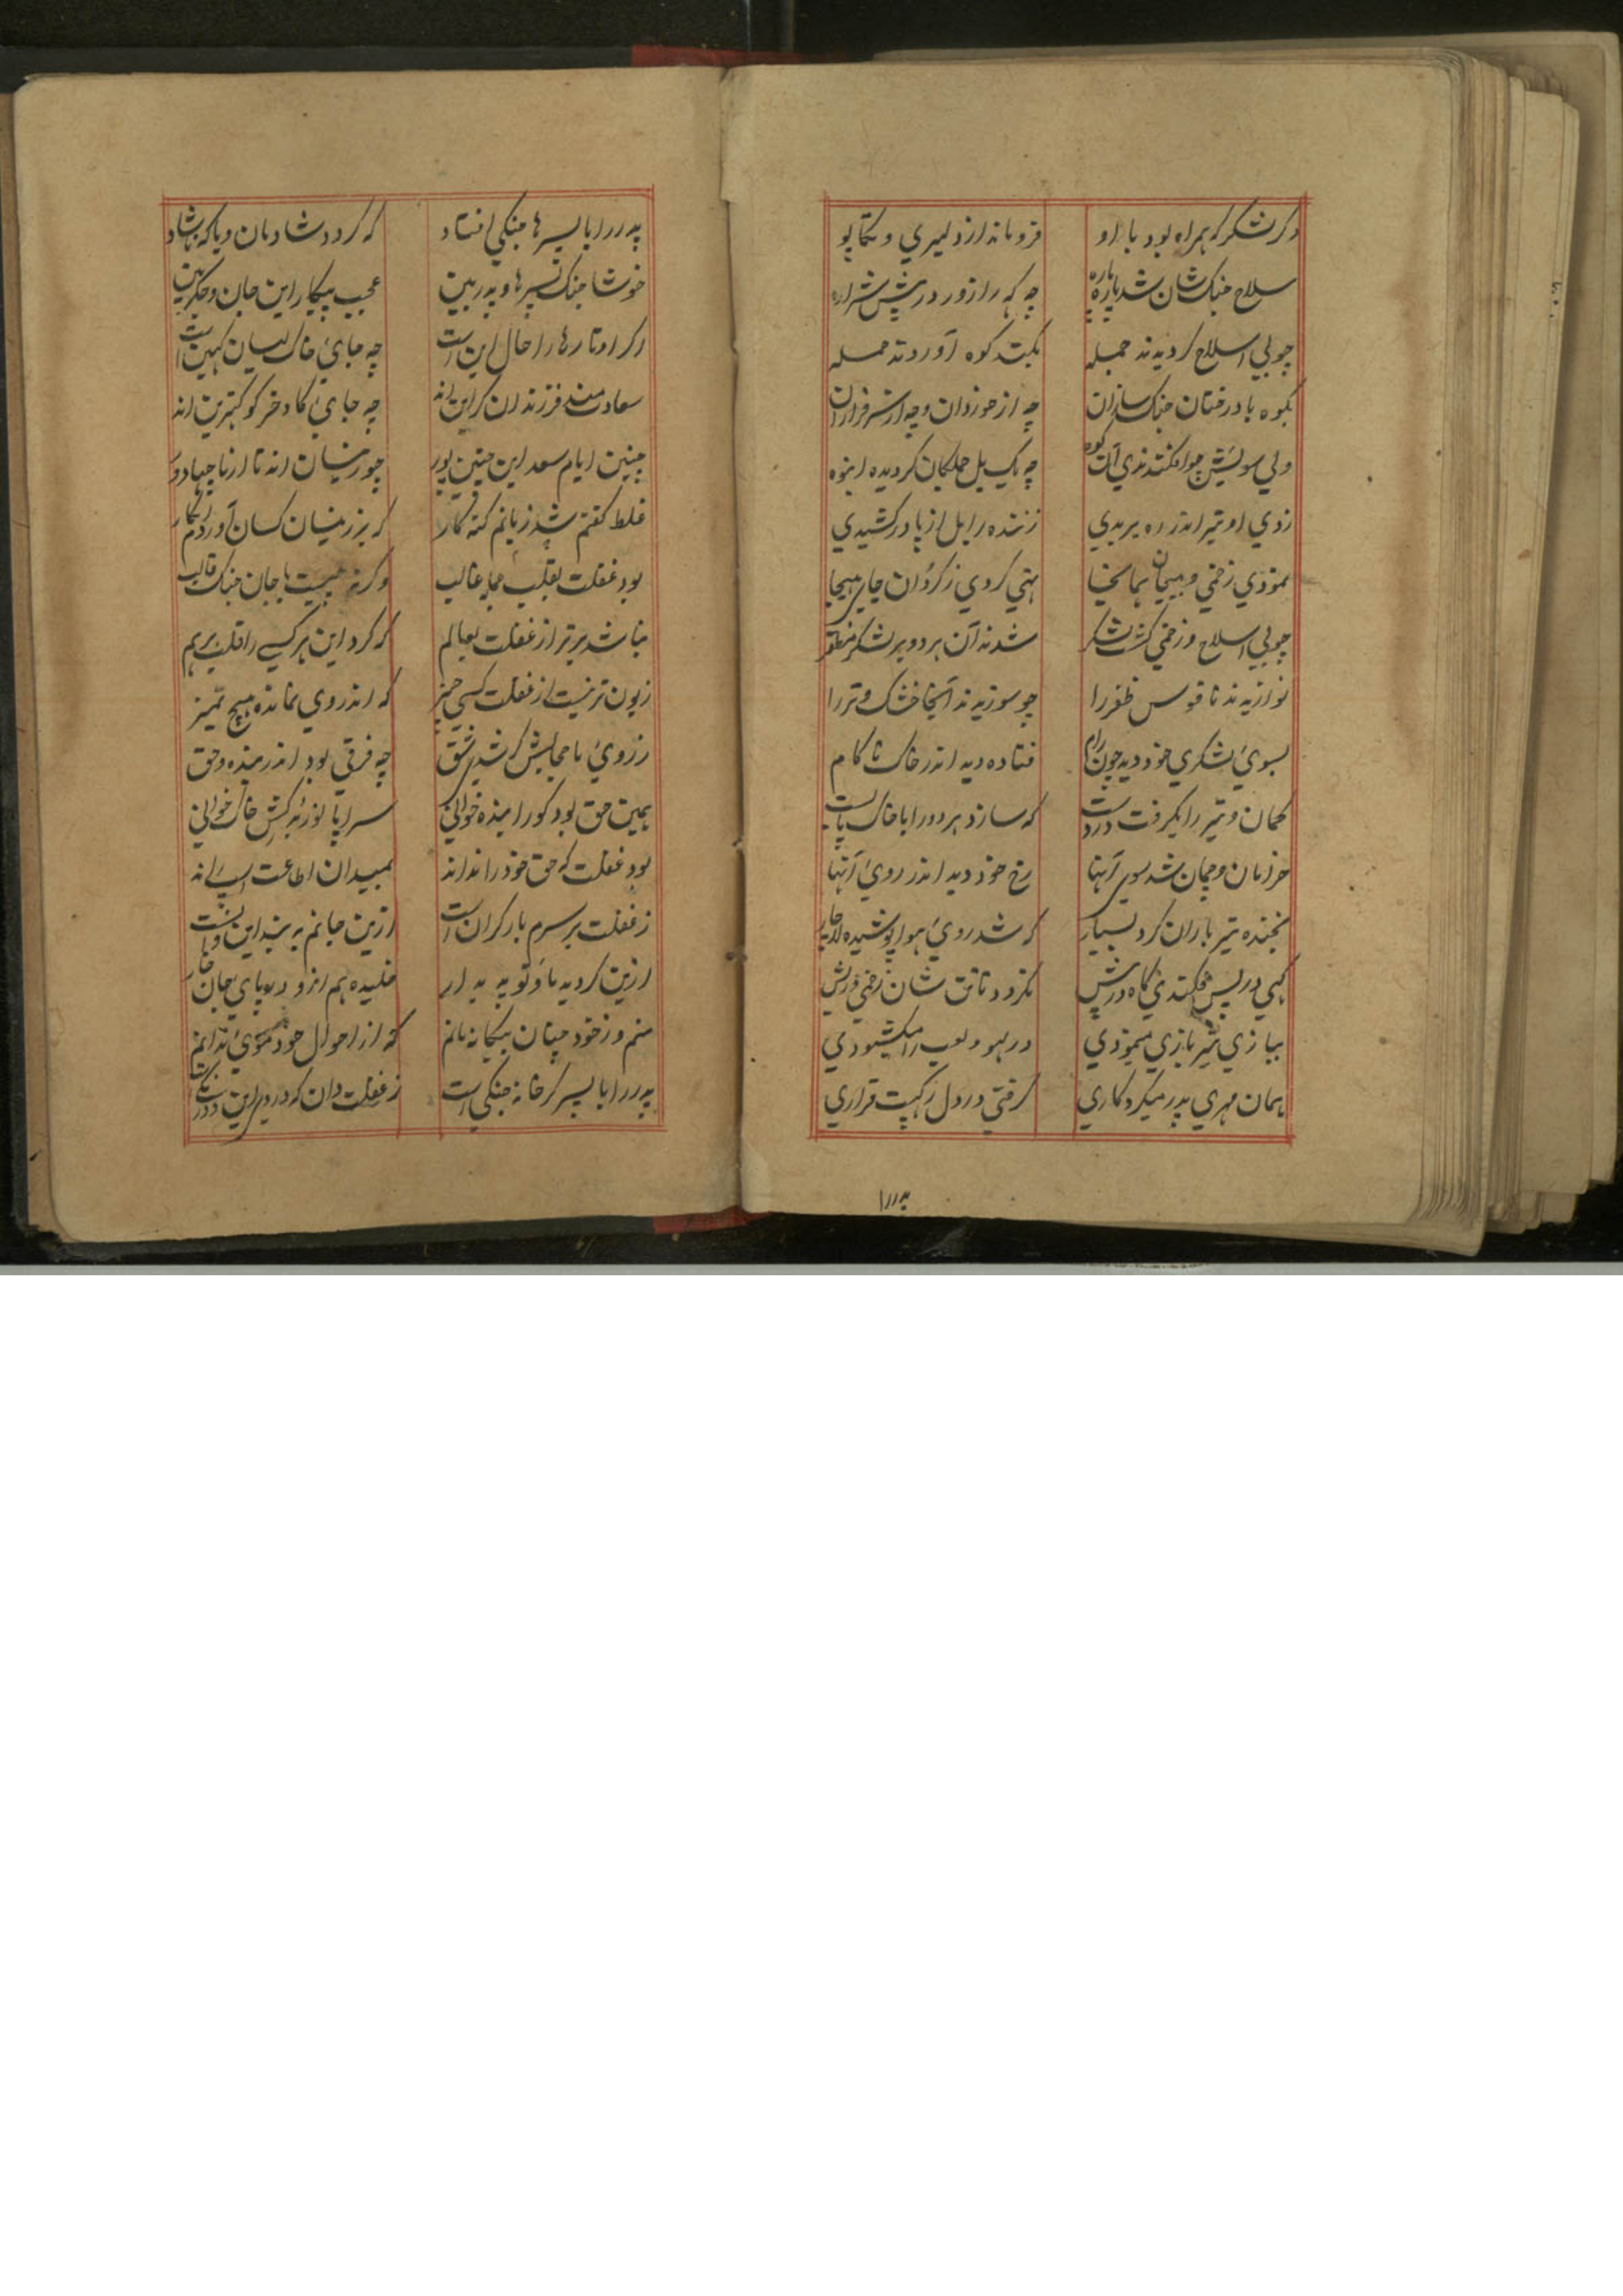 دکر لشکر که همراه بود با او فرو ماند از دلیری و تکاپو
سلاح جنک شان شد پاره پاره چه که را زور در پیش شراره
چو بی اسلاح کردیدند جمله بکندند کوه آوردند حمله
بکوه با درختان جنک سازان چه از خوردان وچه از سرفرازان
ولی سویش چو افکندندی آن کوه چه یک یل جملکان کردیده انبوه
زدی او تیر اندر ره بریدی زننده را بل از پا در کشیدی
نمودی زخمی و بیجان همانجا تهی کردی ز کردان جای هیجا
چو بی اسلاح وزخمی کشت لشکر شدند آن هر دو بر لشکر مظفر
نوازیدند ناقوس ظفر را چو سوزیدند آنجا خشک وتر را
بسوئ لشکری خود دید چون رام فتاده دید اندر خاک ناکام
کمان و تیر را بکرفت در دست که سازد هر دو را با خاک پا بست
خرامان وچمان شد سوی آنها رخ خود دید اندر روئ آنها
بخنده تیر باران کرد بسیار که شد روئ هوا پوشیده
کهی در پس فکندی کاه در پیش نکردد تا تن شان زخمی و ریش
ببازی تیر بازی مینمودی در لهو ولعب را میکشودی
همان مهری پدر میکرد کاری کرفتی در دل
پدر را
پدر را با پسر ها جنکی افتاد که کردد شادمان ویا که ناشاد
خوشا جنک پسرها و پدر بین عجب پیکار این جان وجکر بین
اکر اوتارها را حال این است چه جائ خاکیان کهین است
سعادتمند فرزندان کر این اند چه جائ کا و خر کو کمترین اند
چنین ایام سعد این چنین پور چو زینسان اند تا از ما چها دور
غلط کفتم شد زبانم کنه کار که بر زینسان کسان آوردم انکار
بود غفلت بقلب جمله غالب وکرنه چیست با جان جنک قالب
نباشد برتر از غفلت بعالم که کرد این هر کسی را قلب برهم
زبون تر نیست از غفلت کسی چیز که اندر وی نمانده هیچ تمییز
ز روئ ما حجابش کر شدی شق چه فرقی بود اندر بنده وحق
همین حق بود کو را بنده خوانی سراپا نور کش خاک خوانی
بود غفلت که حق خود را نداند بمیدان اطاعت
ز غفلت بر سرم بار کران است ازین جانم به بند این
ازین کردید پا و تو به به ار خلیده هم ازو در پای جان خار
منم وز خود چنان بیکانه مانم که از احوال خود موئ ندانم
پدر را با پسر کر خانه جنکی است ز غفلت دان که در وی این دورنکی است